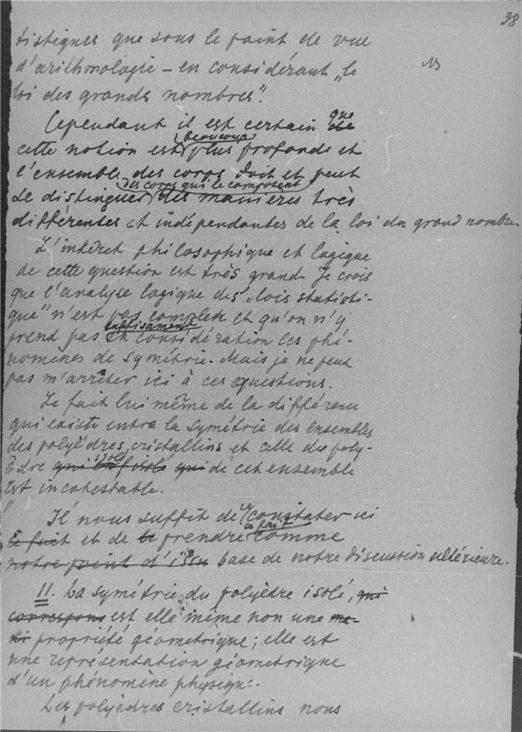 38
tistiques que sous le point de vue
d'arithmologie – en considérant „le
loi des grands nombres".
Cependant il est certain que
cette notion est beaucoup plus profonde et
l'ensemble des corps doit et peut
se distinguer des corps qui le composent des manières très
différentes et indépendantes de la loi du grand nombre
L'intérêt philosophique et logique
de cette question est très grand. Je crois
que l'analyse logique des „lois statisti-
que" n'est pas complète et qu'on n'y
prend pas suffisament en considération les phé-
nomènes de symétrie. Mais je ne peux
pas m'arrêter ici à ces questions.
Le fait lui même de la différence
qui existe entre la symétrie des ensembles
des polyèdres cristallins et celle du poly-
èdre isolé de cet ensemble
est incontestable.
Il nous suffit de constater ici
ce fait et de le prendre comme
notre point d' base de notre discussion ultérieure.
II. La symétrie du polyèdre isolé, qui
correspons est elle même non une
propriété géometrique; elle est
une représentation géometrique
d'un phénomène physique.
Les polyèdres cristallins nous